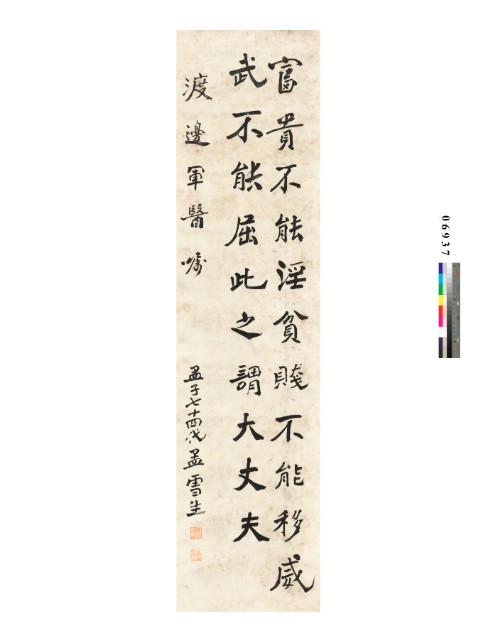 富貴不能淫貧賤不能移威
武不能屈此之謂大丈夫
渡邊軍醫囑
孟子七十四代孟雪生
06937